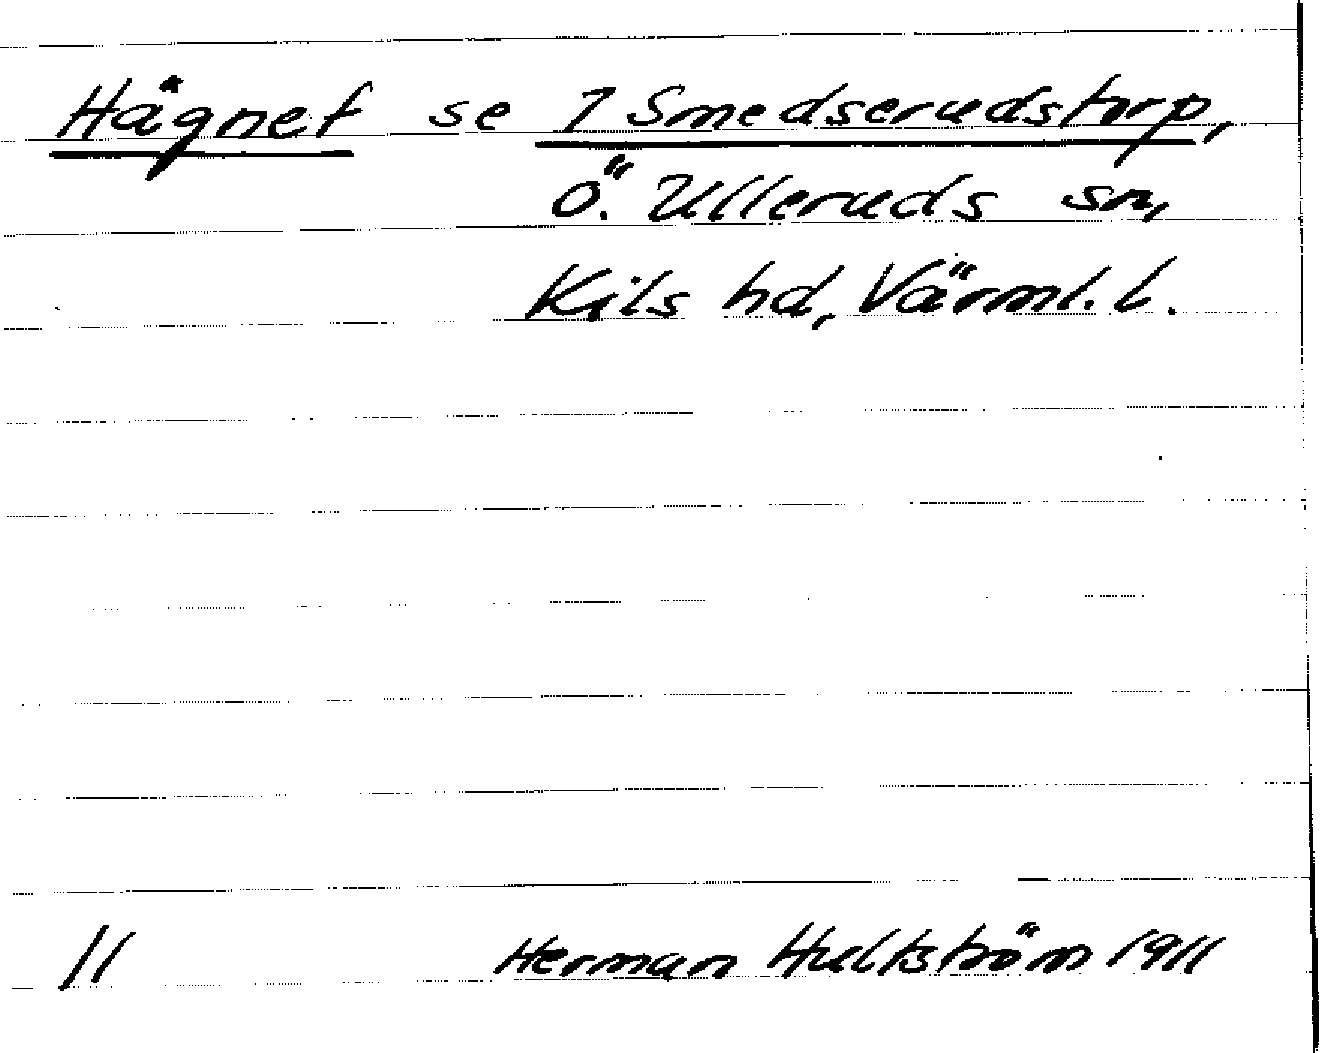 Hägnet se 1 Smedserudstorp,
Ö. Ulleruds sn,
Kils hd, Värml. l.
11 Herman Hultström 1911